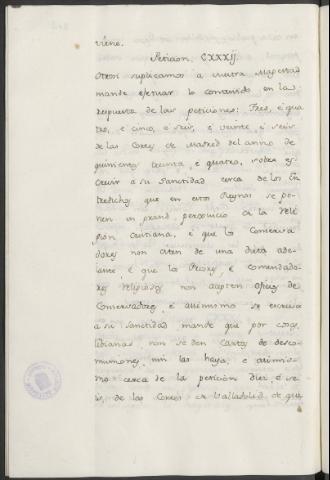 viene.
Peticion. CXXXIJ
Otrosi suplicamos a vuestra Magestad
mande efetuar lo contenido en la
respuesta de las peticiones: Tres, é qua
tro, é cinco, é seis, é veinte, é seis
de las Cortes de Madrid del anno de
quinientos treinta, é quatro, sobre es
crevir a su Santidad cerca de los En
tredichos que en estos Reynos se po
nen en grand perjuicio de la Reli
gion cristiana, é que los Conserva
dores non citen de una dieta ade
lante, é que los Priores, é comendado
res Religiosos non acepten Oficios de
Conservadores, é asimismo se escriva
a su Santidad mande que por cosas
libianas, non se den Cartas de desco
muniones, nin las haya, é asimis
mo cerca de la peticion diez é se
is, de las Cortes de Valladolid de que